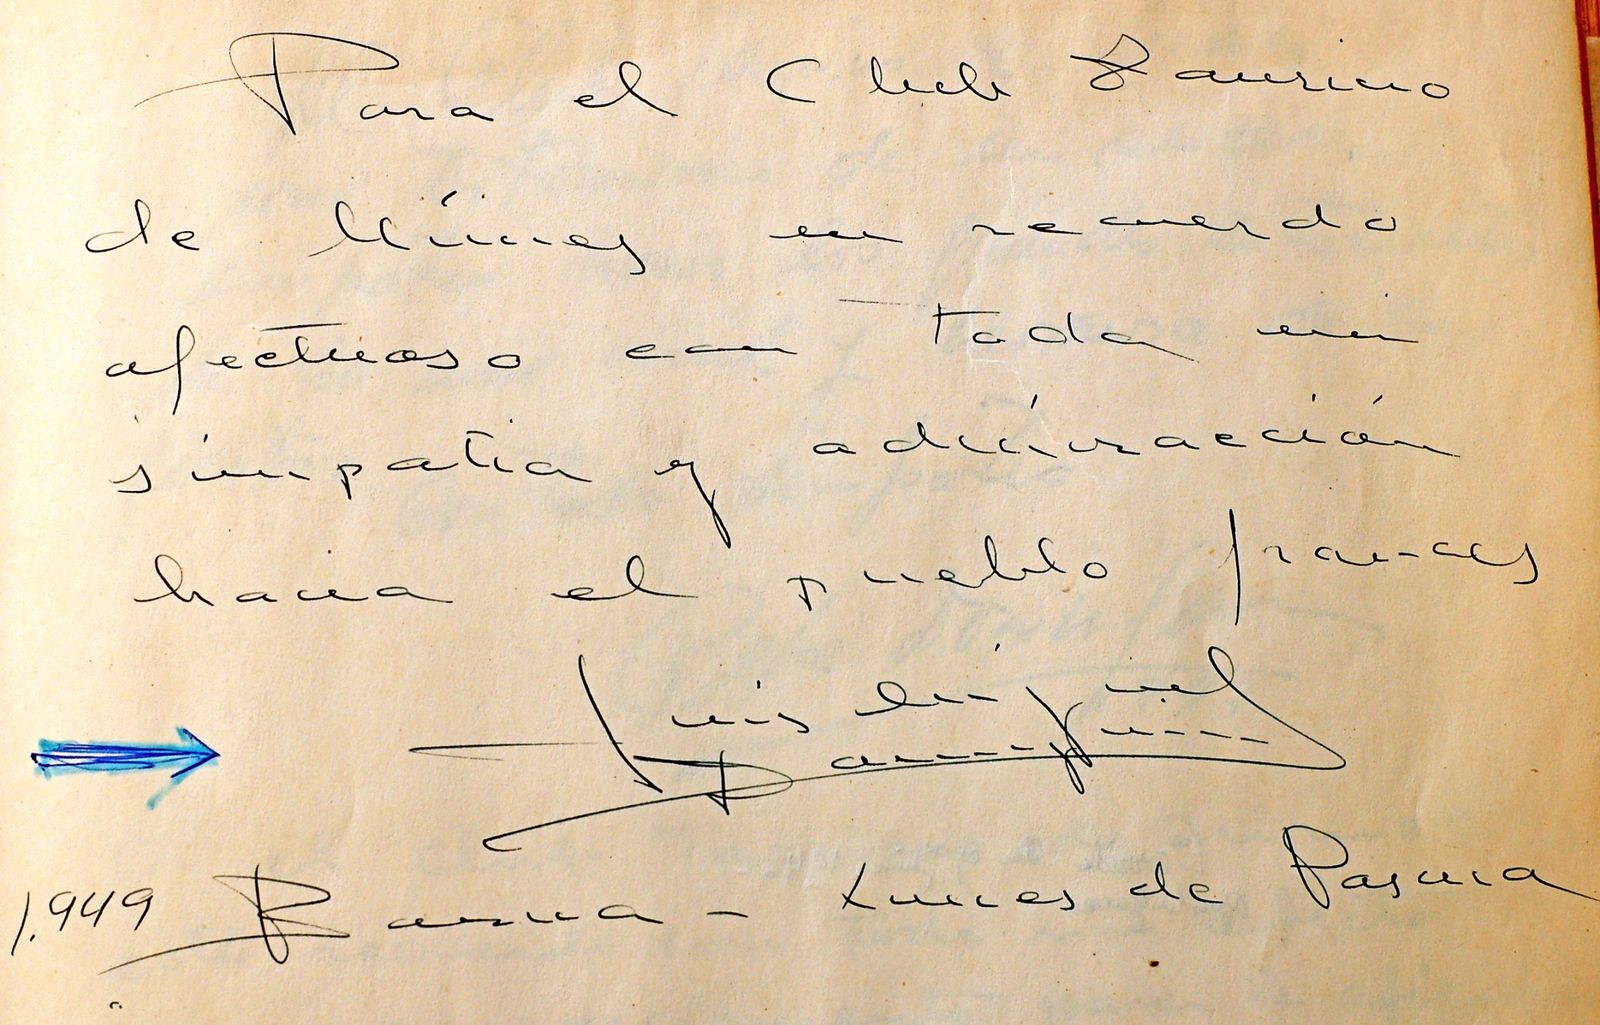 Para el Club Taurino
de Nimes en recuerdo
afectuoso con toda mi
simpatia y admiración
hacia el pueblo frances
Luis Miguel
Dominguin
1.949 Barna - Lunes de Pascua